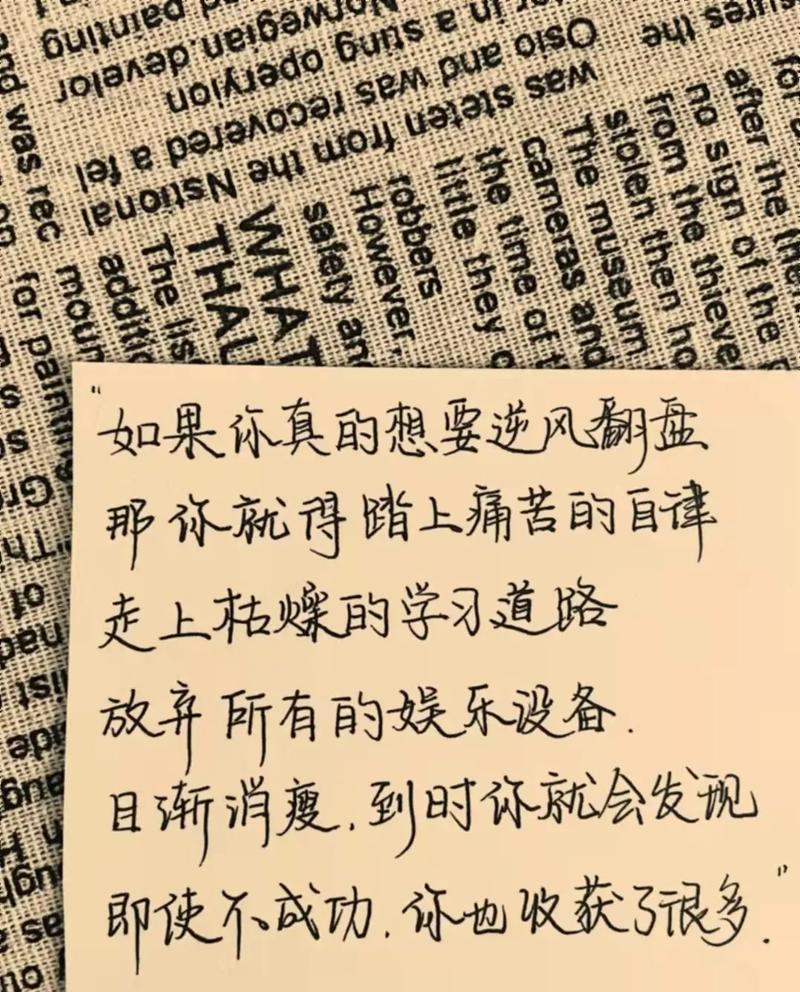 "如果你真的想要逆风翻盘
那你就得踏上痛苦的自律
走上枯燥的学习道路
放弃所有的娱乐设备.
日渐消瘦.到时你就会发现
即使不成功.你也收获了很多."
and painting
Norwegian.develor
in a sting operyion
Osio and was recovered a fel
was steten from the Nstional
sures the
for
after the
no sign of the
from the thieve
stolen then ho
The museum
cameras and
the time of t
little they
robbers
However,
safety an
WHAT
THAU
The lis
additio
moun
for painting
and was rec